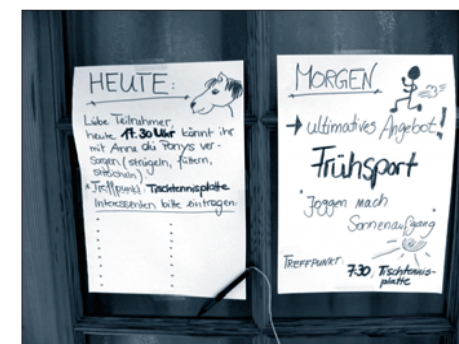 HEUTE:
Liebe Teilnehmer,
heute 17.30 Uhr könnt ihr
mit Anna die Ponys ver-
sorgen (striegeln, füttern,
streicheln)
* Treffpunkt: Tischtennisplatte
Interessenten bitte eintragen:
MORGEN
→ ultimatives Angebot!
Frühsport
"Joggen nach
Sonnenaufgang"
TREFFPUNKT:
7.30, Tischtennis-
platte